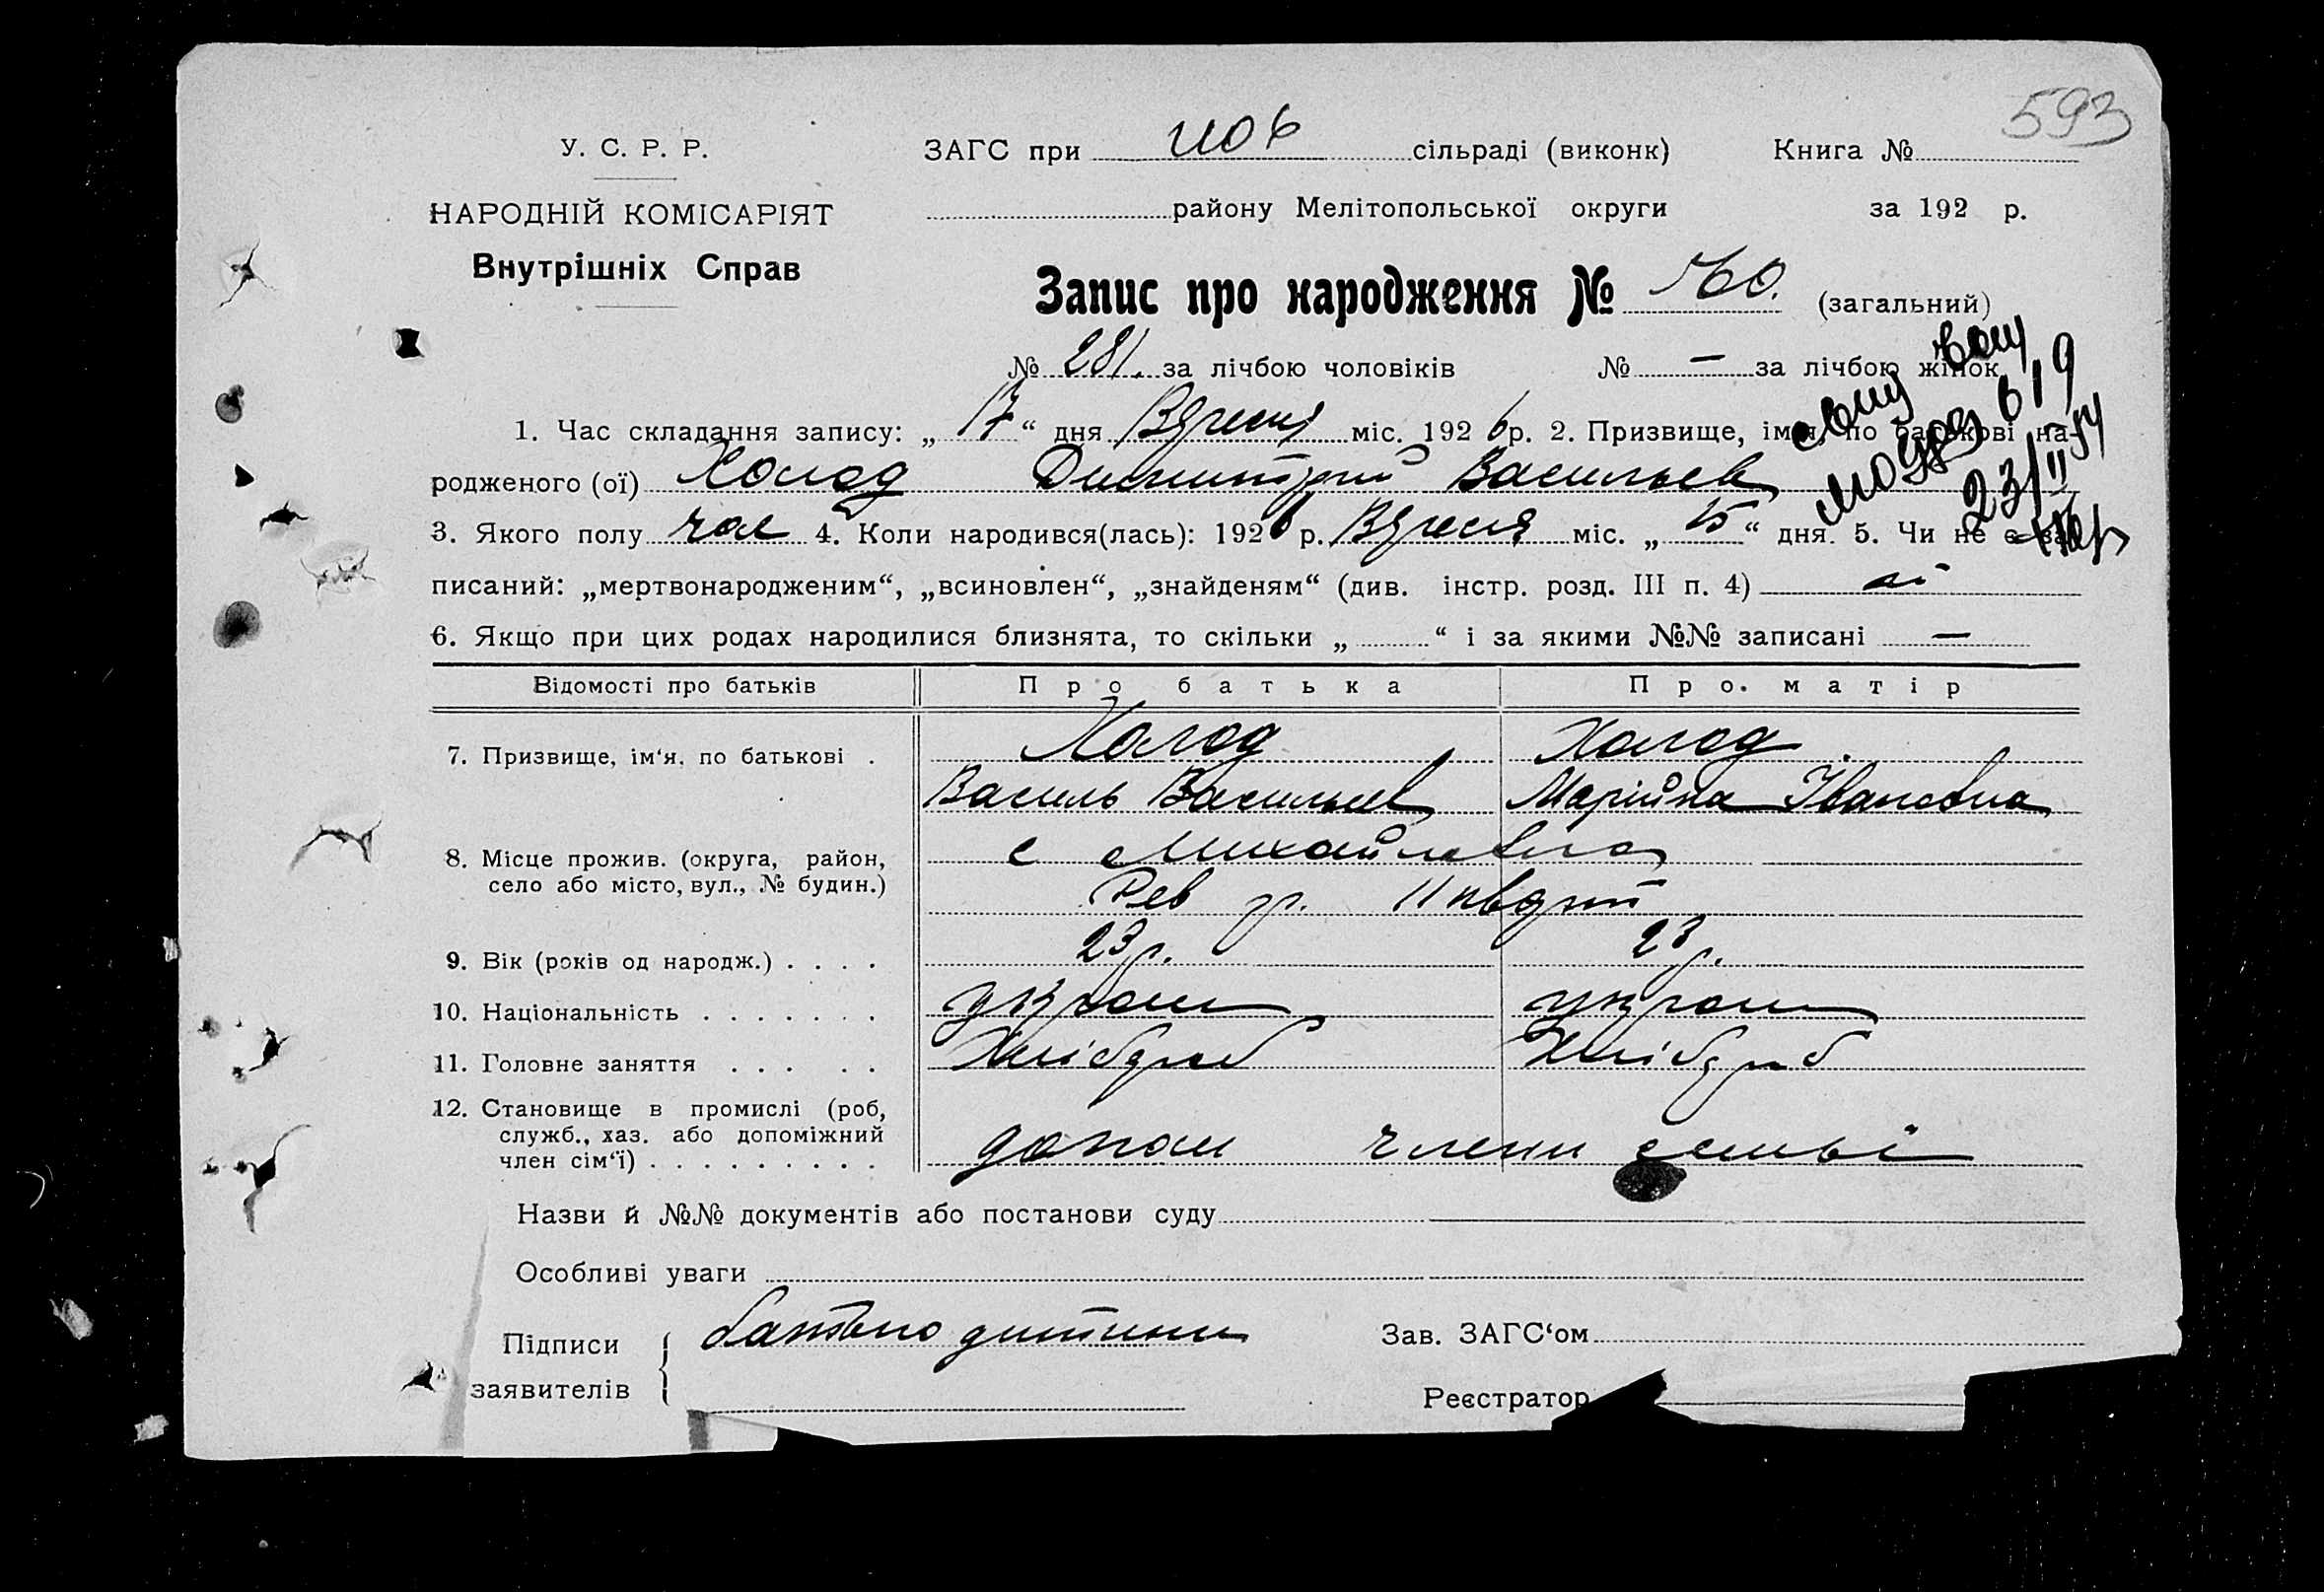 593
У. С. Р. Р.
ЗАГС при сільраді (виконк) Книга №
НАРОДНІЙ КОМІСАРІЯТ
району Мелітопольської округи за 192 р.
Внутрішніх Справ
Запис про народження № 560. (загальний)
№ 281. за лічбою чоловіків № — за лічбою жінок
1. Час складання запису: „17“ дня Вересня міс. 1926 р. 2. Призвище, імя, по батькові на-
родженого (ої) Холод Дмитрий Васильев
619
23/II 54
3. Якого полу чол 4. Коли народився(лась): 1926 р. Вересня міс. „15“ дня. 5. Чи не є за-
писаний: „мертвонародженим“, „всиновлен“, „знайденям“ (див. інстр. розд. III п. 4) ні
6. Якщо при цих родах народилися близнята, то скільки „ “ і за якими №№ записані —
Відомості про батьків Про батька Про. матір
7. Призвище, ім‘я, по батькові . Холод Холод
Василь Васильев Марійна Івановна
8. Місце прожив. (округа, район, с Михайловка
село або місто, вул., № будин.) Рев гр. 11 квдрт
9. Вік (років од народж.) . . . . 23 р. 23 р.
10. Національність . . . . . . . украин украин
11. Головне заняття . . . . . Хлібороб Хлібороб
12. Становище в промислі (роб,
служб., хаз. або допоміжний
член сім‘ї) . . . . . . . . . допом члени семьї
Назви й №№ документів або постанови суду
Особливі уваги
Підписи батько дитини Зав. ЗАГС‘ом
заявителів Реєстратор